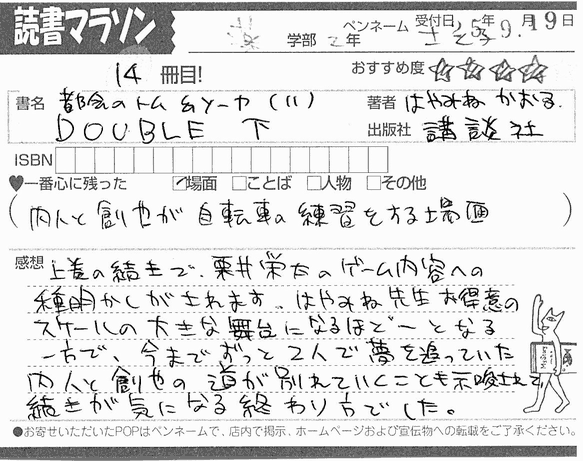 読書マラソン
学部 2年
ペンネーム
受付日 5年 9月 19日
14 冊目!
おすすめ度 ☆☆☆☆
書名 都会のトム&ソーヤ(11)
DOUBLE 下
著者 はやみね かおる
出版社 講談社
ISBN
♥一番心に残った ☑場面 □ことば □人物 □その他
(内人と創也が自転車の練習をする場面)
感想 上巻の続きで、栗井栄太のゲーム内容への
種明かしがされます。はやみね先生お得意の
スケールの大きな舞台になるほど〜となる
一方で、今までずっと2人で夢を追っていた
内人と創也の道が別れていくことも示唆されて
続きが気になる終わり方でした。
●お寄せいただいたPOPはペンネームで、店内で掲示、ホームページおよび宣伝物への転載をご了承ください。